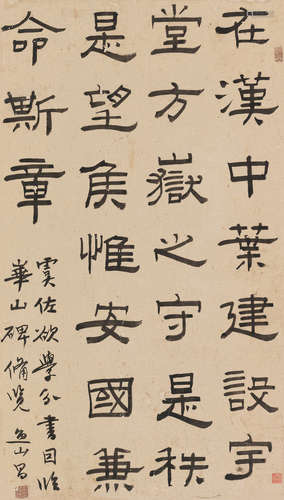 在漢中葉建設宇
堂方嶽之守是秩
是望侯惟安國兼
命斯章
虞佐欲學分書因臨
華山碑備覽 山